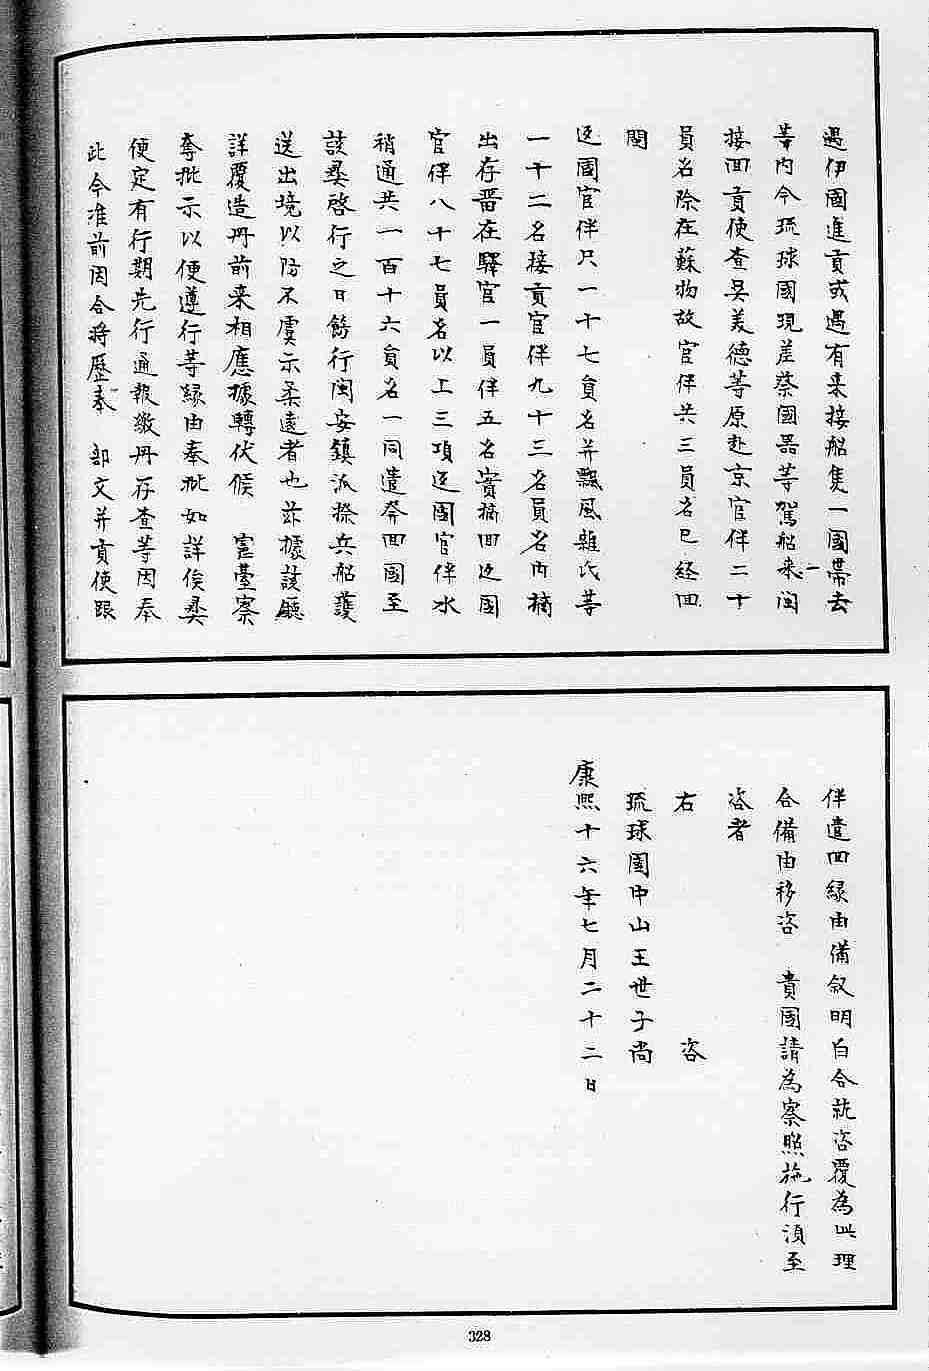 遇伊國進貢或遇有來接船隻一國帶去
等內今琉球國現差蔡國器等駕船來閩
接回貢使查吳美德等原赴京官伴二十
員名除在蘇物故官伴共三員名已經回
閩
返國官伴只一十七員名并飄風難民等
一十二名接貢官伴九十三名員名內摘
出存畱在驛官一員伴五名實摘回返國
官伴八十七員名以上三項返國官伴水
稍通共一百十六員名一同遣發回國至
該員啓行之日飭行閩安鎮派撥兵船護
送出境以防不虞示柔遠者也玆據該廳
詳覆造冊前來相應據轉伏候 憲臺察
奪批示以便遵行等緣由奉批如詳俟員
使定有行期先行通報繳冊存查等因奉
此今准前因合將歷奉 部文并貢使跟
伴遣回緣由備敘明白合就咨覆為此理
合備由移咨 貴國請為察照施行湏至
咨者
右 咨
琉球國中山王世子尚
康熙十六年七月二十二日
328